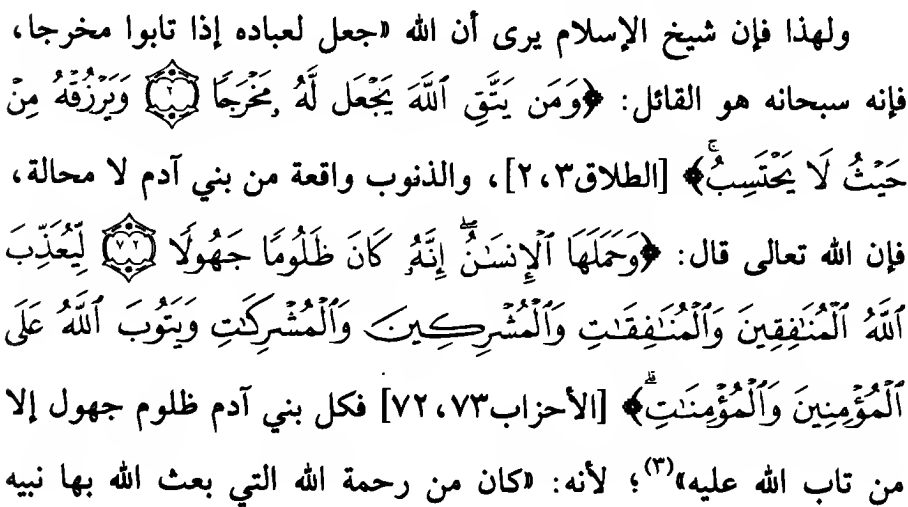 ولهذا فإن شيخ الإسلام يرى أن الله «جعل لعباده إذا تابوا مخرجا،
فإنه سبحانه هو القائل: ﴿وَمَن يَتَّقِ ٱللَّهَ يَجْعَل لَّهُۥ مَخْرَجًا ۝٢ وَيَرْزُقْهُ مِنْ
حَيْثُ لَا يَحْتَسِبُ ۚ﴾ [الطلاق٢،٣]، والذنوب واقعة من بني آدم لا محالة،
فإن الله تعالى قال: ﴿وَحَمَلَهَا ٱلْإِنسَـٰنُ ۖ إِنَّهُۥ كَانَ ظَلُومًا جَهُولًا ۝٧٢ لِّيُعَذِّبَ
ٱللَّهُ ٱلْمُنَـٰفِقِينَ وَٱلْمُنَـٰفِقَـٰتِ وَٱلْمُشْرِكِينَ وَٱلْمُشْرِكَـٰتِ وَيَتُوبَ ٱللَّهُ عَلَى
ٱلْمُؤْمِنِينَ وَٱلْمُؤْمِنَـٰتِ ۗ﴾ [الأحزاب٧٢،٧٣] فكل بني آدم ظلوم جهول إلا
من تاب الله عليه»(٣)؛ لأنه: «كان من رحمة الله التي بعث الله بها نبيه